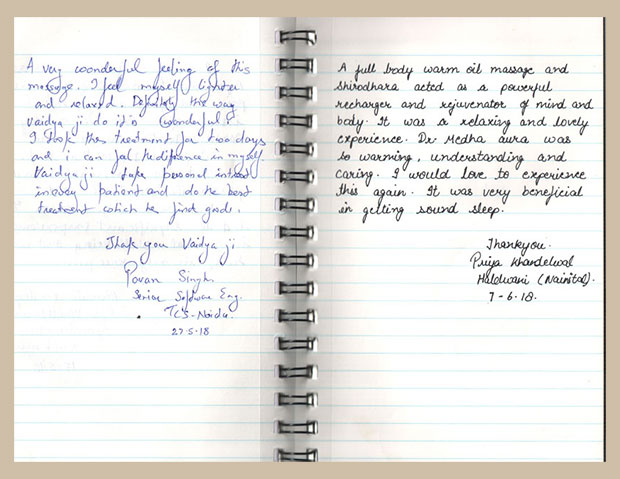 A very woonderful feeling of this
massage. I feel myself lighter
and relaxed. Definitely the way
Vaidya ji do it's wonderful!
I took this treatment for two days
and i can feel the difference in myself
Vaidya ji take personal intrest
in every patient and do the best
treatment which he find good.
Thank you Vaidya ji
Pavan Singh
Senior Software Eng.
TCS-Noida.
27-5-18
A full body warm oil massage and
Shirodhara acted as a powerful
recharger and rejuvenator of mind and
body. It was a relaxing and lovely
experience. Dr Medha aura was
so warming, understanding and
caring. I would love to experience
this again. It was very beneficial
in getting sound sleep.
Thankyou.
Priya Khandelwal
Haldwani (Nainital).
7-6-18.